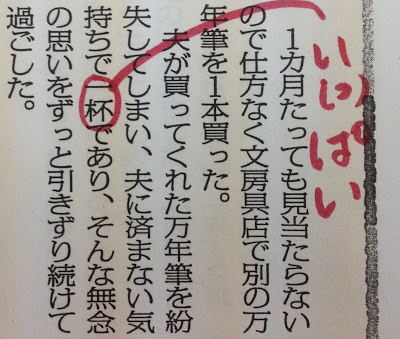 いっぱい
1カ月たっても見当たらない
ので仕方なく文房具店で別の万
年筆を1本買った。
夫が買ってくれた万年筆を紛
失してしまい、夫に済まない気
持ちで一杯であり、そんな無念
の思いをずっと引きずり続けて
過ごした。